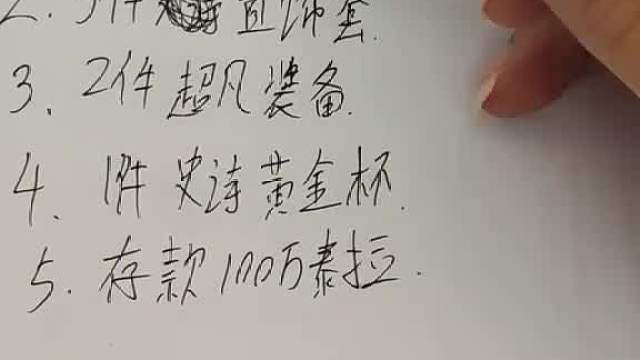 2. 3件首饰套.
3、2件超凡装备.
4、1件史诗黄金杯.
5. 存款100万泰拉.